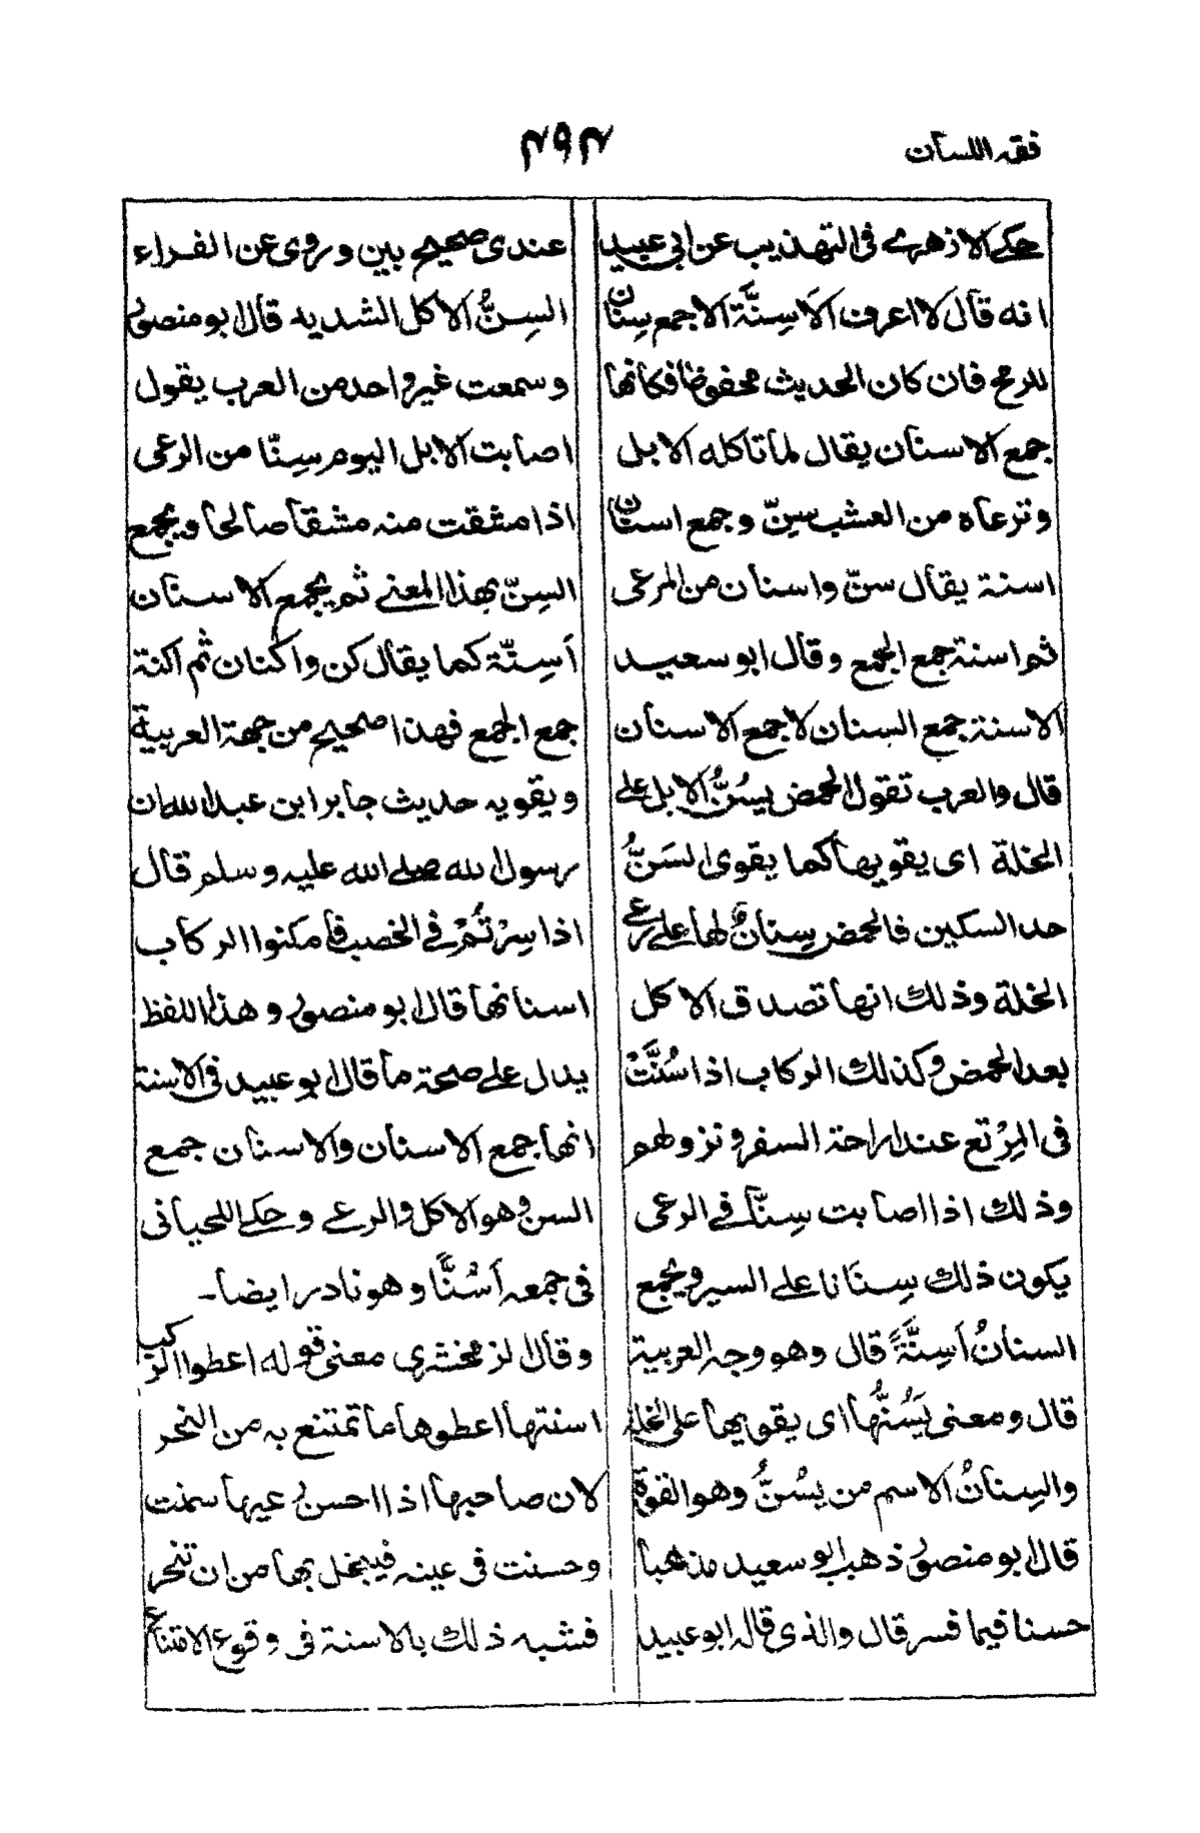 فقہ اللسان
حکے الازھرے فی التھذیب عن ابی عبید
انه قال لا اعرف الَاسِنَّة الا جمع سِنان
للرمح فان کان الحدیث محفوظا فکانها
جمع الاسنان یقال لما تاکله الابل
وترعاہ من العشب سِنّ وجمع اسنان
اسنة یقال سنّ واسنان من المرعی
ثم اسنة جمع الجمع وقال ابو سعید
الاسنة جمع السنان لا جمع الاسنان
قال والعرب تقول الحمض یسُنُّ الابل علی
الخلة ای یقویها کما یقوی السَنُّ
حد السکین فالحمض سِنانٌ لها علی رعی
الخلة وذلك انها تصدق الاکل
بعد الحمض وکذلك الرکاب اذا سُنَّتْ
فی المِرْتع عند اراحة السفر ونزولهم
وذلك اذا اصابت سِنّا فے الرعی
یکون ذلك سِنَانا علی السیر ویجمع
السنانُ اَسِنَّةً قال وهو وجہ العربیة
قال ومعنی یَسُنُّها ای یقویها علی الخلة
والسِنانُ الاسم من یسُنُّ وهو القوة
قال ابو منصور ذهب ابو سعید مذهبا
حسنا فیما فسر قال والذی قاله ابو عبید
عندی صحیح بین وروی عن الفراء
السِنُّ الاکل الشدید قال ابو منصور
وسمعت غیر واحد من العرب یقول
اصابت الابل الیوم سِنّا من الرعی
اذا مشقت منہ مشقا صالحا ویجمع
السِنّ بهذا المعنے ثم یجمع الاسنان
اَسِنّة کما یقال کن واکنان ثم اکنة
جمع الجمع فهذا صحیح من جهة العربیة
ویقویہ حدیث جابر ابن عبد الله ان
رسول الله صلے الله علیہ وسلم قال
اذا سِرْتُمْ فے الخصب فامکنوا الرکاب
اسنانها قال ابو منصور وهذا اللفظ
یدل علے صحة ما قال ابو عبید فی الاسنة
انها جمع الاسنان والاسنان جمع
السن وهو الاکل والرعے وحکے اللحیانی
فی جمعہ اَسُنًّا وهو نادر ایضا۔
وقال الزمخشری معنی قوله اعطوا الرکب
اسنتها اعطوها ما تمتنع به من النحر
لان صاحبها اذا احسن رعیها سمنت
وحسنت فی عینہ فیبخل بها من ان تنحر
فشبہ ذلك بالاسنة فی وقوع الامتناع